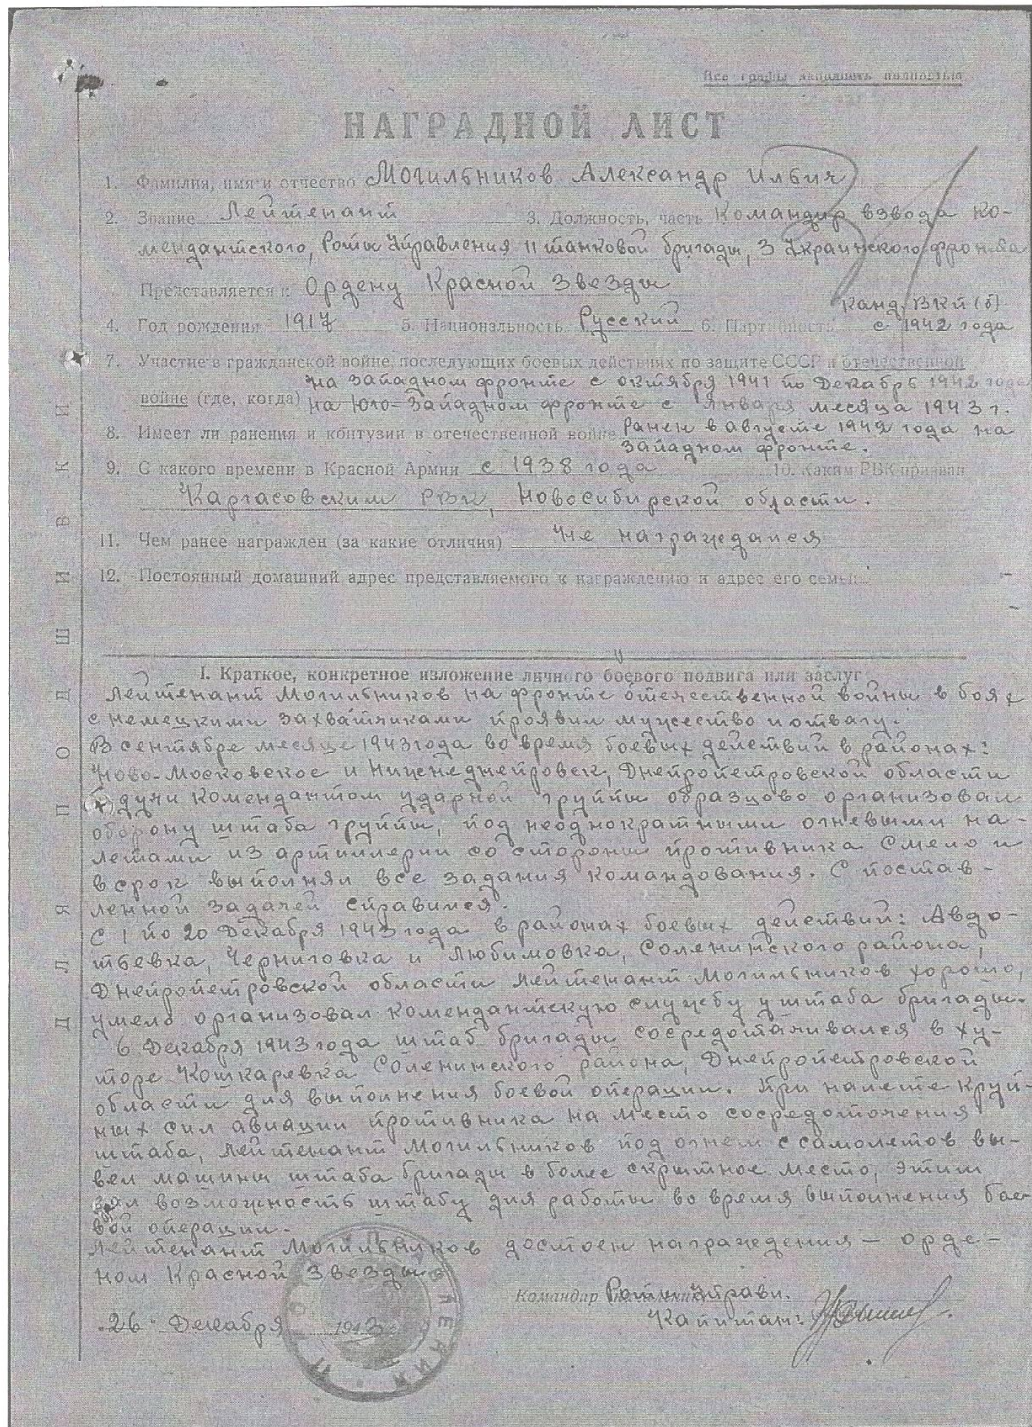 Все графы заполнять полностью
НАГРАДНОЙ ЛИСТ
1. Фамилия, имя и отчество Могильников Александр Ильич
2. Звание Лейтенант 3. Должность, часть Командир взвода Ко-
мендантского, Роты Управления 11 танковой бригады, 3 Украинского фронта
Представляется к Ордену Красной Звезды
Канд. ВКП(б)
4. Год рождения 1917 5. Национальность Русский 6. Партийность с 1942 года
7. Участие в гражданской войне, последующих боевых действиях по защите СССР и отечественной
на западном фронте с октября 1941 по Декабрь 1942 года
войне (где, когда) на Юго-Западном фронте с января месяца 1943 г.
8. Имеет ли ранения и контузии в отечественной войне Ранен в августе 1942 года на
западном фронте.
9. С какого времени в Красной Армии с 1938 года 10. Каким РВК призван
Каргасовским РВК, Новосибирской области.
11. Чем ранее награжден (за какие отличия) Не награждался
12. Постоянный домашний адрес представляемого к награждению и адрес его семьи
I. Краткое, конкретное изложение личного боевого подвига или заслуг
Лейтенант Могильников на фронте отечественной войны в боях
с немецкими захватчиками проявил мужество и отвагу.
В сентябре месяце 1943 года во время боевых действий в районах:
Ново-Московское и Нижнеднепровск, Днепропетровской области
будучи комендантом ударной группы образцово организовал
оборону штаба группы, под неоднократными огневыми на-
летами из артиллерии со стороны противника смело и
в срок выполнял все задания командования. С постав-
ленной задачей справился.
С 1 по 20 Декабря 1943 года в районах боевых действий: Авдо-
тьевка, Черниговка и Любимовка, Соленинского района,
Днепропетровской области Лейтенант Могильников хорошо,
умело организовал комендантскую службу у штаба бригады.
6 Декабря 1943 года штаб бригады сосредотачивался в ху-
торе Кошкаревка Соленинского района, Днепропетровской
области для выполнения боевой операции. При налете круп-
ных сил авиации противника на место сосредоточения
штаба, Лейтенант Могильников под огнем с самолетов вы-
вел машины штаба бригады в более скрытное место, этим
дал возможность штабу для работы во время выполнения бое-
вой операции.
Лейтенант Могильников достоен награждения – орде-
ном Красной Звезды
Командир Роты Управл.
"26" Декабря 1943 Капитан:
ДЛЯ ПОДШИВКИ